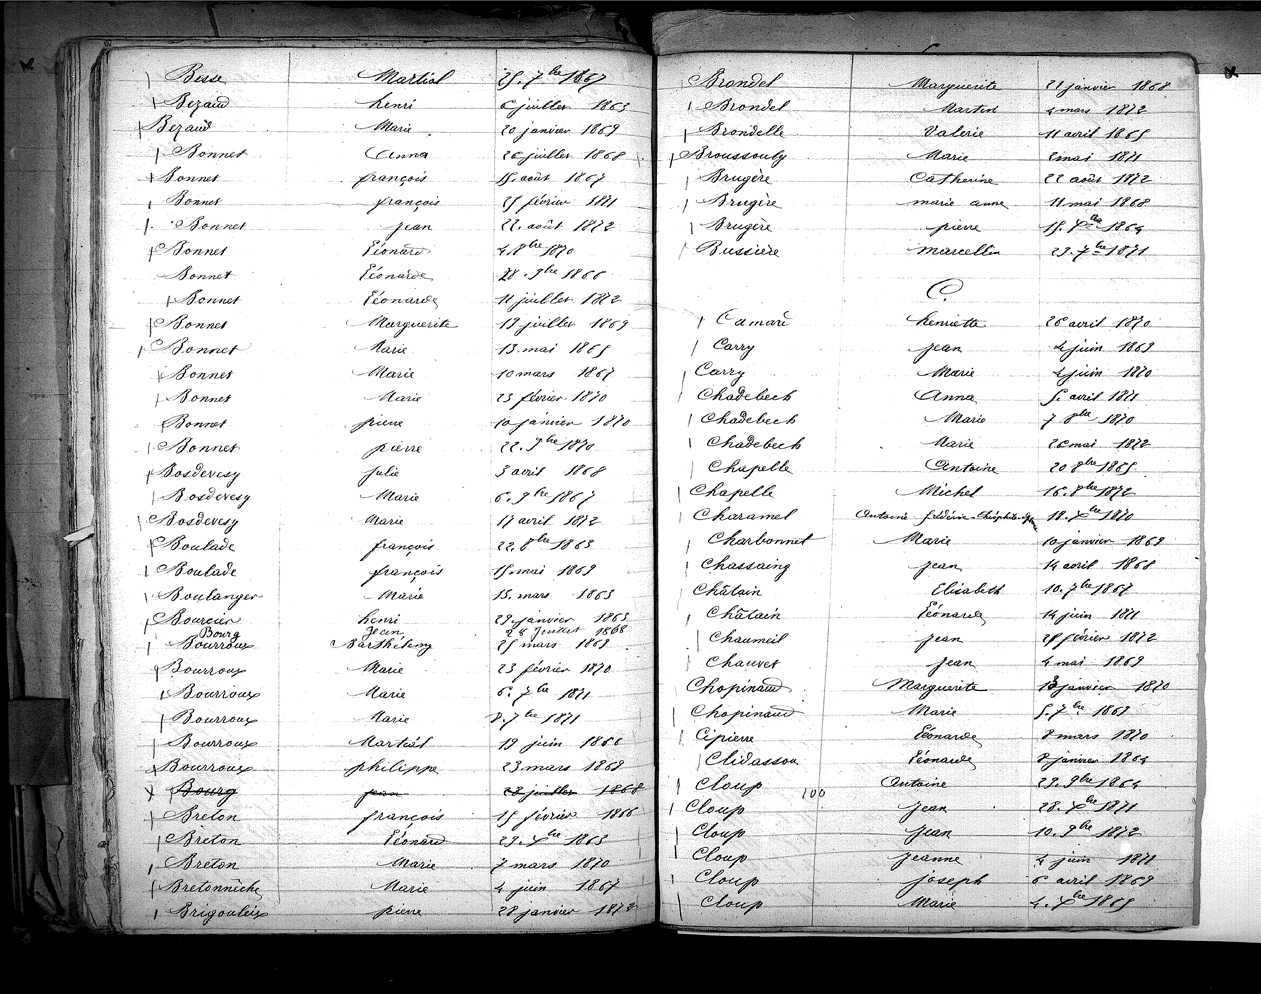 Besse Martial 25. 7bre 1867
Bezaud henri 6 juillet 1863
Bezaud Marie 20 janvier 1869
Bonnet Anna 26 juillet 1868
Bonnet françois 15. août 1867
Bonnet françois 25 février 1871
Bonnet jean 22. août 1872
Bonnet Léonard 4. 8bre 1870
Bonnet Léonarde 28. 9bre 1866
Bonnet Léonarde 11 juillet 1872
Bonnet Marguerite 19 juillet 1869
Bonnet Marie 13. mai 1865
Bonnet Marie 10 mars 1867
Bonnet Marie 23 février 1870
Bonnet pierre 10 janvier 1870
Bonnet pierre 22. 9bre 1870
Bosdevesy julie 3 avril 1868
Bosdevesy Marie 6. 9bre 1867
Bosdevesy Marie 17 avril 1872
Boulade françois 22. 8bre 1863
Boulade françois 15. mai 1869
Boulanger Marie 15. mars 1863
Bourcier henri 29. janvier 1863
Bourg Jean 28 Juillet 1868
Bourroux Barthélemy 25 mars 1863
Bourroux Marie 23 février 1870
Bourroux Marie 6. 7bre 1871
Bourroux Marie 8. 7bre 1871
Bourroux Martial 19 juin 1866
Bourroux philippe 23. mars 1868
Bourg jean 28 juillet 1868
Breton françois 15 février 1866
Breton Léonard 29. Xbre 1863
Breton Marie 7 mars 1870
Bretonnèche Marie 4 juin 1867
Brigouleix pierre 28 janvier 1872
Brondel Marguerite 21 janvier 1868
Brondel Martin 4 mars 1872
Brondelle Valérie 11 avril 1865
Broussouly Marie 2 mai 1871
Brugère Catherine 22 août 1872
Brugère marie anne 11 mai 1868
Brugère pierre 15. Xbre 1864
Bussière marcellin 23. 7bre 1871
C.
Camaré henriette 26 avril 1870
Carry jean 4 juin 1863
Carry Marie 4 juin 1870
Chadebech Anna 5. avril 1871
Chadebech Marie 7 8bre 1870
Chadebech Marie 26 mai 1872
Chapelle Antoine 20 8bre 1865
Chapelle Michel 16. 8bre 1872
Charamel Antoine frédéric 18. Xbre 1870
Charbonnet Marie 10 janvier 1869
Chassaing jean 14 avril 1868
Châtain Elisabeth 10. 7bre 1867
Châtain Léonarde 14 juin 1871
Chaumeil jean 28 février 1872
Chauvet jean 4 mai 1869
Chopinaud Marguerite 13 janvier 1870
Chopinaud Marie 5. 7bre 1869
Cipierre Léonarde 8 mars 1870
Clidassou Léonarde 8 janvier 1864
Cloup Antoine 29. 9bre 1864
100
Cloup jean 28. Xbre 1871
Cloup jean 10. 9bre 1872
Cloup jeanne 4 juin 1871
Cloup joseph 6 avril 1869
Cloup Marie 4. Xbre 1865